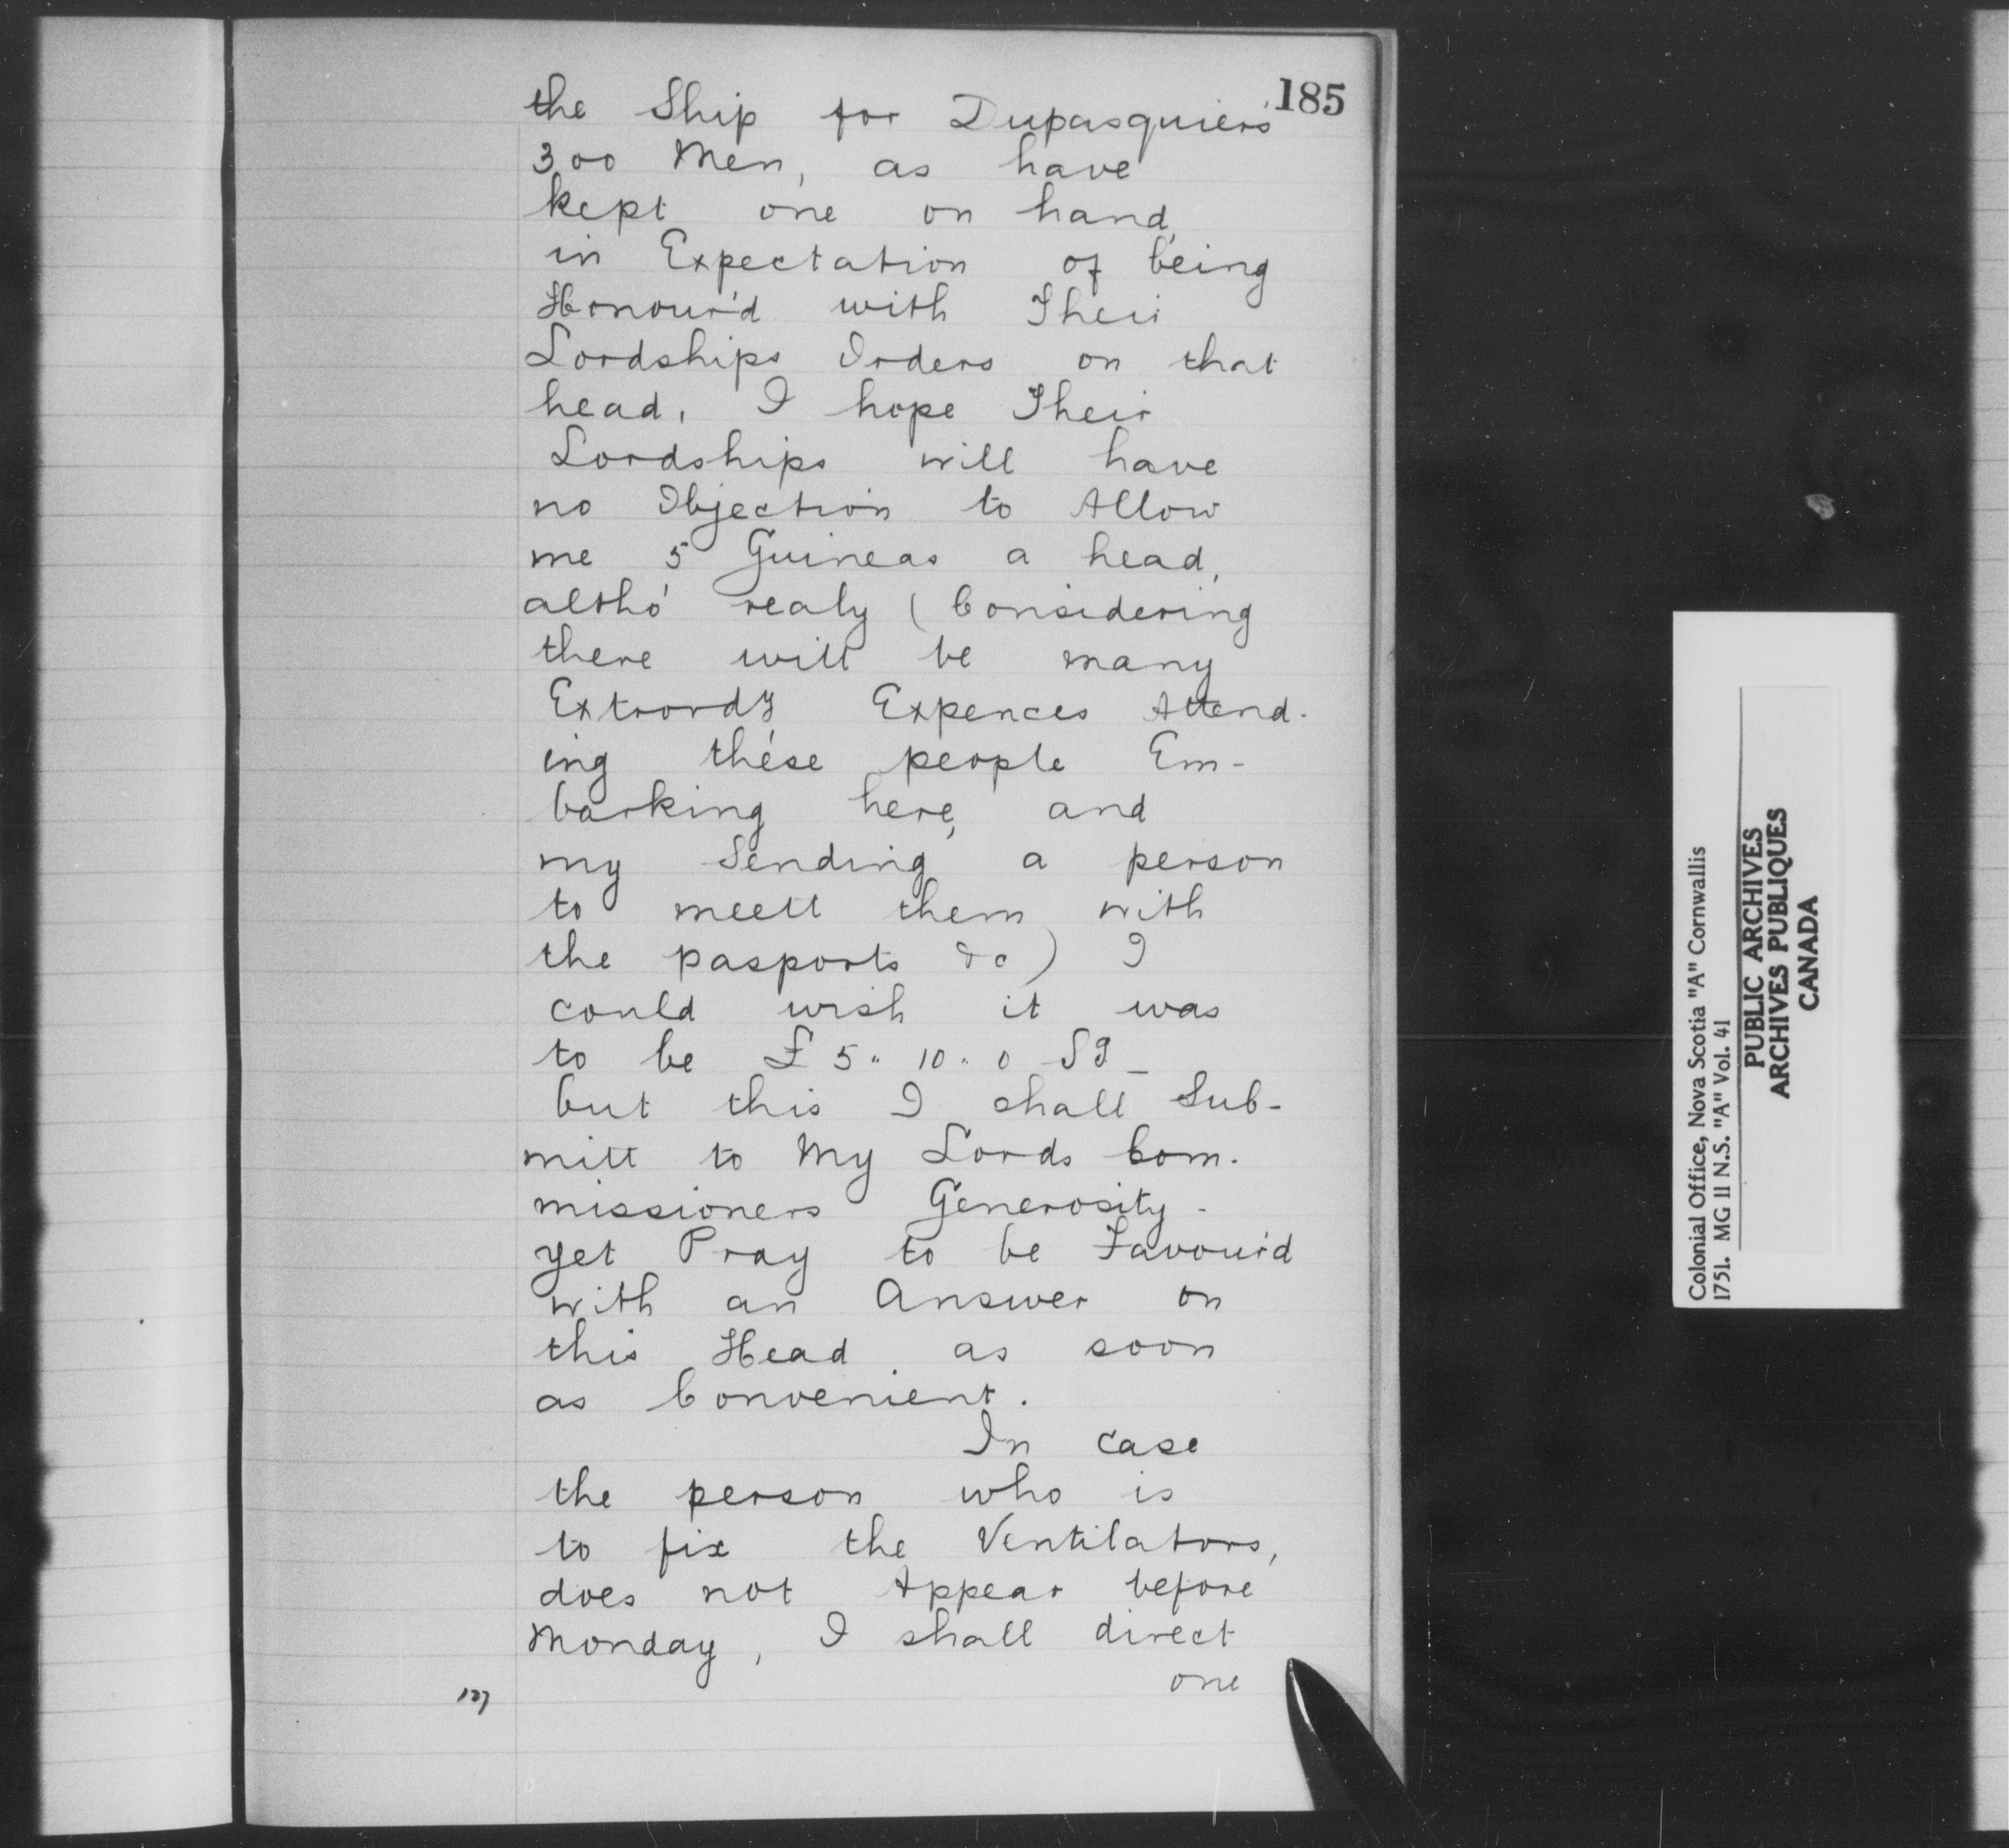 185
the Ship for Dupasquiers
300 Men, as have
kept one on hand,
in Expectation of being
Honour'd with Their
Lordships Orders on that
head, I hope Their
Lordships will have
no Objection to Allow
me 5 Guineas a head,
altho' realy (Considering
there will be many
Extrordy Expences Attend-
ing these people Em-
barking here, and
my Sending a person
to meett them with
the pasports &c) I
could wish it was
to be £5" 10" 0 Sg _
but this I shall Sub-
mitt to My Lords Com-
missioners Generosity -
yet Pray to be Favour'd
with an Answer on
this Head as soon
as Convenient.
In case
the person who is
to fix the Ventilators,
does not Appear before
Monday, I shall direct
one
127
Colonial Office, Nova Scotia "A" Cornwallis
1751. MG 11 N.S. "A" Vol. 41
PUBLIC ARCHIVES
ARCHIVES PUBLIQUES
CANADA